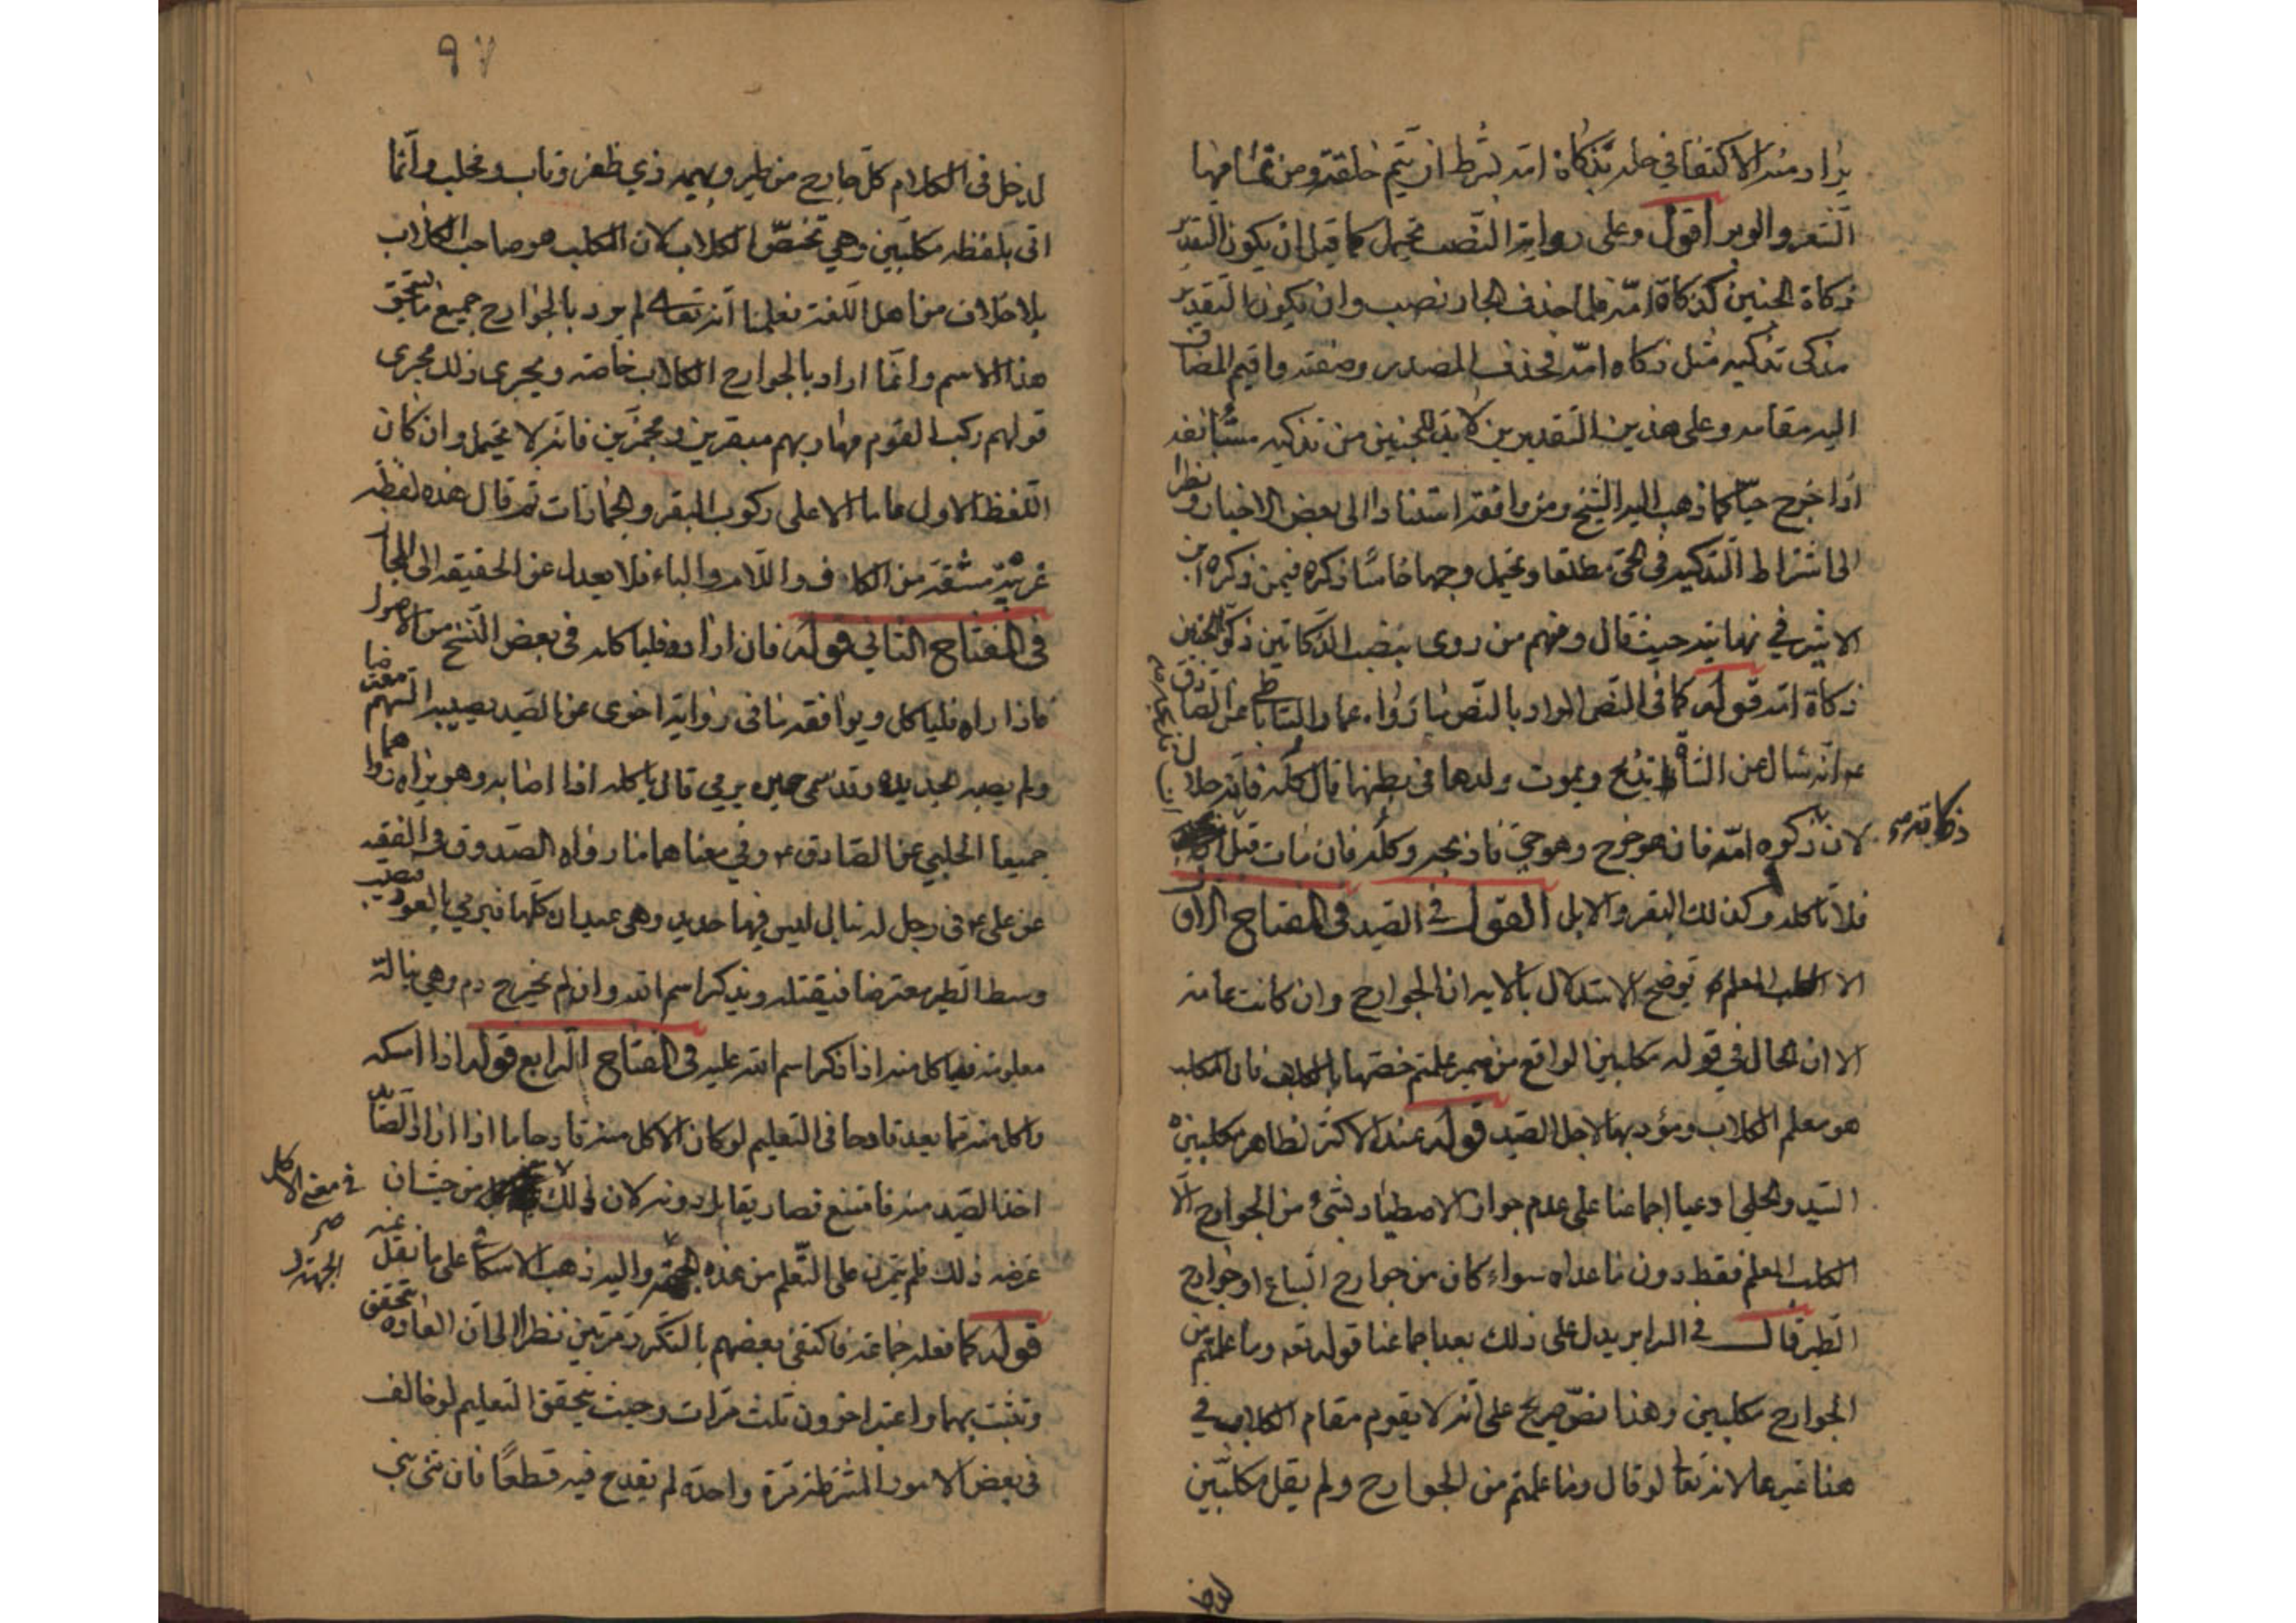 يراد منه الاكتفا في حله بذكاة امه بشرط ان يتم خلقته ومن تمامها
الشعر والوبر اقول وعلى رواية النصب يحتمل كما قيل ان يكون التقدير
ذكاة الجنين كذكاة امه فلما حذف الجار نصب وان يكون التقدير
مذكى تذكيه مثل ذكاه امه فحذف المصدر وصفته واقيم المضاف
اليه مقامه وعلى هذين التقديرين لابد للجنين من تذكيه مستانفه
اذا خرج حيا كما ذهب اليه الشيخ ومن وافقه استنادا الى بعض الاخبار ونظرا
الى اشتراط التذكيه في الحى مطلقا ويحتمل وجها خامسا ذكره فيمن ذكره ابن
الاثير في نهايته حيث قال ومنهم من روى بنصب الذكاتين ذكوا الجنين
ذكاة امه قوله كما في النص المراد بالنص ما رواه عمار الساباطي عن الصادق
عم انه سال عن الشاة تذبح ويموت ولدها في بطنها قال كله فانه حلال
لان ذكوه امه فان هو خرج وهو حي فاذبحه وكله فان مات قبل ان
ذكاته
فلا تاكله وكذلك البقر والابل القول في الصيد في المفتاح الاول
الا الكلب المعلم توضيح الاستدلال بالايه ان الجوارح وان كانت عامة
الا ان الحال في قوله مكلبين الواقع من ضمير علمتم خصها بالكلاب فان المكلب
هو معلم الكلاب ومؤدبها لاجل الصيد قوله عند الاكثر لظاهر مكلبين
السيد والحلي ادعيا اجماعنا على عدم جواز الاصطياد بشئ من الجوارح الا
الكلب المعلم فقط دون ما عداه سواء كان من جوارح السباع او جوارح
الطير قال في السرابر يدل على ذلك بعد اجماعنا قوله تعه وما علمتم من
الجوارح مكلبين وهذا نص صريح على انه لا يقوم مقام الكلاب في
هذا غيرها لانه تعا لو قال وما علمتم من الجوارح ولم يقل مكلبين
لدخل
٩٧
لدخل في الكلام كل جارح من طير وبهيمه ذي ظفر وناب ومخلب وانما
اتى بلفظه مكلبين وهي تخص الكلاب لان المكلب هو صاحب الكلاب
بلا خلاف من اهل اللغة فعلمنا انه تعالى لم يرد بالجوارح جميع ما يستحق
هذا الاسم وانما اراد بالجوارح الكلاب خاصه ويجرى ذلك مجرى
قولهم ركب القوم مهاربهم مبقرين ومجمزين فانه لا يحتمل وان كان
اللفظ الاول عاما الا على ركوب البقر والجمازات ثم قال هذه لفظه
عربية مشتقة من الكاف واللام والباء فلا يعدل عن الحقيقه الى المجاز
في المفتاح الثاني قوله فان اراده فلياكله في بعض النسخ من الاصول
فاذا راه فلياكل ويوافقه ما في رواية اخرى عن الصيد يصيبه السهم معترضا
ولم يصبه بحديده وقد سمى حين يرمي قال ياكله اذا اصابه وهو يراه رواهما
جميعا الحلبي عن الصادق ع وفي معناهما ما رواه الصدوق في الفقيه
عن على ع في رجل له نبال ليس فيها حديد وهي عيدان كلها فيرمي بالعود فيصيب
وسط الطير معترضا فيقتله ويذكر اسم الله وان لم يخرج دم وهي نبالة
معلومة فياكل منه اذا ذكر اسم الله عليه في المفتاح الرابع قوله اذا امسكه
واكل منه مما يعد قادحا في التعليم لو كان الاكل منه قادحا ما اذا اراد الصائد
اخذ الصيد منه فامتنع فصار يقابل دونه لان ذلك من حيث ان
في معنى الاكل
غرضه ذلك فلم يتمرن على التعلم من هذه الجهة واليه ذهب الاسكافي على ما نقل عنه
قوله كما فعله جماعة فاكتفى بعضهم بالتكرر مرتين نظرا الى ان العاده تتحقق
وتثبت بهما واعتبر اخرون ثلث مرات وحيث يتحقق التعليم لو خالف
في بعض الامور المشترطة مرة واحدة لم يقدح فيه قطعا فان ثنى بنى